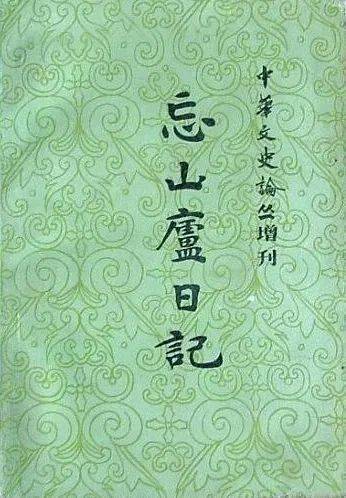 中華文史論丛增刊
忘山廬日記